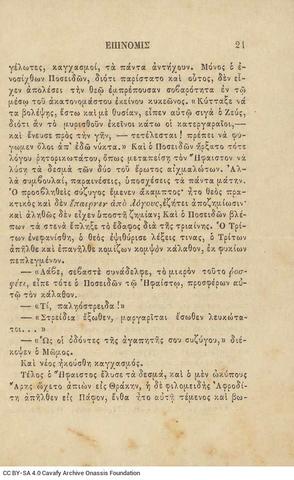 ΕΠΙΝΟΜΙΣ 21
γέλωτες, καγχασμοί, τὰ πάντα ἀντήχουν. Μόνος ὁ ἐ-
νοσίχθων Ποσειδῶν, διότι παρίστατο καὶ οὗτος, δὲν εἶ-
χεν ἀπολέσει τὴν θεῷ ἐμπρέπουσαν σοβαρότητα ἐν τῷ
μέσῳ τοῦ ἀκατονομάστου ἐκείνου κυκεῶνος. «Κύτταξε νὰ
τὰ βολέψῃς, ἔστω καὶ μὲ θυσίαν, εἶπεν αὐτῷ σιγὰ ὁ Ζεύς,
διότι ἂν τὸ μυρισθοῦν ἐκεῖνοι κάτω οἱ κατεργαραῖοι,—
καὶ ἔνευσε πρὸς τὴν γῆν, — τετέλεσται! πρέπει νὰ φύ-
γωμεν ὅλοι ἀπ' ἐδῶ νύκτα.» Καὶ ὁ Ποσειδῶν ἤρξατο τότε
λόγου ῥητορικωτάτου, ὅπως μεταπείσῃ τὸν Ἥφαιστον νὰ
λύσῃ τὰ δεσμὰ τῶν δύο τοῦ ἔρωτος αἰχμαλώτων. Ἀλ-
λὰ συμβουλαί, παραινέσεις, ὑποσχέσεις τὰ πάντα μάτην.
Ὁ προσβληθεὶς σύζυγος ἔμενεν ἄκαμπτος· ἦτο θεὸς πρα-
κτικὸς καὶ δὲν ἔπαιρνεν ἀπὸ λόγους, ἐζήτει ἀποζημίωσιν·
καὶ ἀληθῶς δὲν εἶχεν ὑποστῆ ζημίαν; Καὶ ὁ Ποσειδῶν βλέ-
πων τὰ στενὰ ἔπληξε τὸ ἔδαφος διὰ τῆς τριαίνης. Ὁ Τρί-
των ἐνεφανίσθη, ὁ θεὸς ἐψιθύρισε λέξεις τινας, ὁ Τρίτων
ἀπῆλθε καὶ ἐπανῆλθε κομίζων κομψὸν κάλαθον, ἐκ φυκίων
πεπλεγμένον.
— «Λάβε, σεβαστὲ συνάδελφε, τὸ μικρὸν τοῦτο ῥοσ-
φέτι, εἶπε τότε ὁ Ποσειδῶν τῷ Ἡφαίστῳ, προσφέρων αὐ-
τῷ τὸν κάλαθον.
— «Τί, παληόστρειδα!»
— «Στρείδια ἔξωθεν, μαργαρῖται ἔσωθεν λευκώτα-
τοι...»
— «Ὡς οἱ ὀδόντες τῆς ἀγαπητῆς σου συζύγου,» διέ-
κοψεν ὁ Μῶμος.
Καὶ νέος ἠκούσθη καγχασμός.
Τέλος ὁ Ἥφαιστος ἔλυσε τὰ δεσμά, καὶ ὁ μὲν ὠκύπους
Ἄρης ᾤχετο ἀπιὼν εἰς Θρᾴκην, ἡ δὲ φιλομειδὴς Ἀφροδί-
τη ἀπῆλθεν εἰς Πάφον, ἔνθα ἦτο αὐτῇ τέμενος καὶ βω-
CC BY-SA 4.0 Cavafy Archive Onassis Foundation